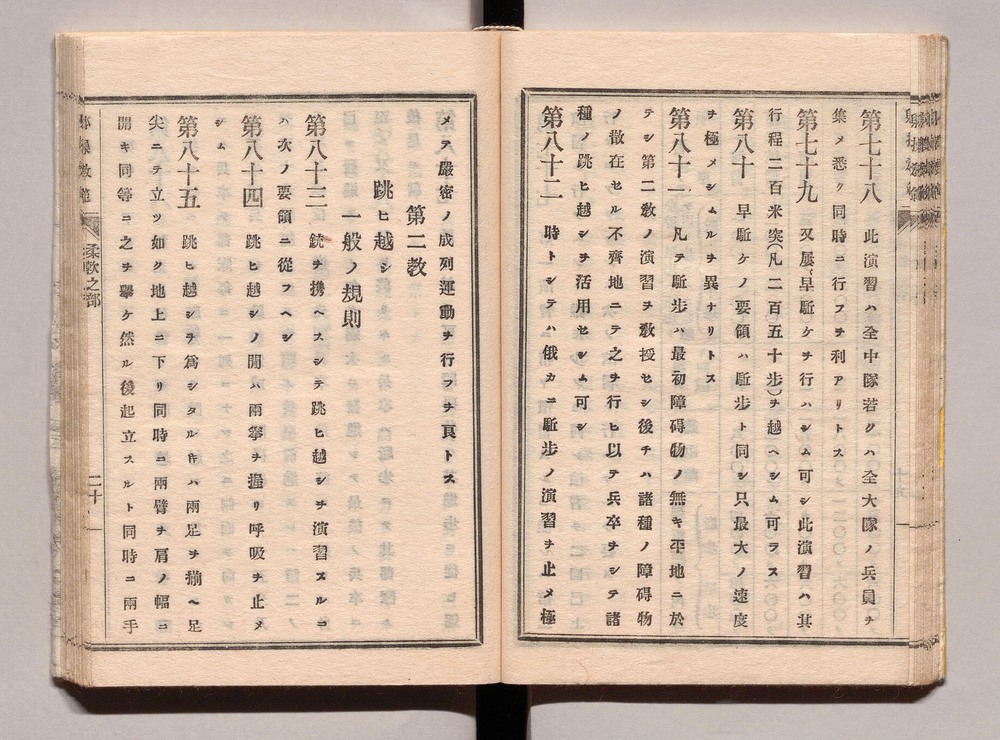 第七十八 此演習ハ全中隊若クハ全大隊ノ兵員ヲ
集メ悉ク同時ニ行フヲ利アリトス
第七十九 又屢〻早駈ケヲ行ハシム可シ此演習ハ其
行程二百米突(凡二百五十歩)ヲ越ヘシム可ラス
第八十 早駈ケノ要領ハ駈歩ト同シ只最大ノ速度
ヲ極メシムルヲ異ナリトス
第八十一 凡テ駈歩ハ最初障碍物ノ無キ平地ニ於
テシ第二教ノ演習ヲ教授セシ後チハ諸種ノ障碍物
ノ散在セル不齊地ニテ之ヲ行ヒ以テ兵卒ヲシテ諸
種ノ跳ヒ越シヲ活用セシム可シ
第八十二 時トシテハ俄カニ駈歩ノ演習ヲ止メ極
メテ嚴密ノ成列運動ヲ行フヲ良トス
第二教
跳ヒ越シ
一般ノ規則
第八十三 銃ヲ携ヘスシテ跳ヒ越シヲ演習スルニ
ハ次ノ要領ニ從フヘシ
第八十四 跳ヒ越シノ間ハ兩拳ヲ握リ呼吸ヲ止メ
シム
第八十五 跳ヒ越シヲ爲シタルキハ兩足ヲ揃ヘ足
尖ニテ立ツ如ク地上ニ下リ同時ニ兩臂ヲ肩ノ幅ニ
開キ同等ニ之ヲ擧ケ然ル後起立スルト同時ニ兩手
柔軟之部
二十